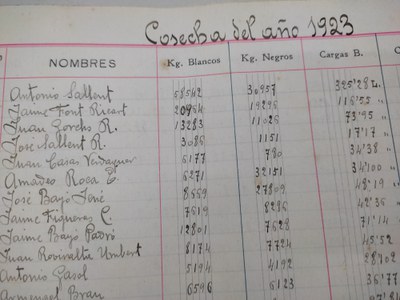 Cosecha del año 1923
NOMBRES Kg. Blancos Kg. Negros Cargas B.
Antonio Sallent 58542 30957 325'28
Jaime Font Ricart 20984 19296 116'55 "
Juan Gorchs R. 13283 11026 73'95 "
Jose Sallent R. 3086 1151 17'17 "
Juan Casas 6177 780 34'38 "
Amadeo Roca 6271 32151 34'100 "
José Bayó José 8669 27809 48'19 "
Jaime Figueras C. 7619 8286 42'36 "
Jaime Bayó 12801 7628 71'14 "
Juan Roviralta Umbert 8174 7724 45'52
Antonio Casol 5194 4192
Brau 6596 6123 36'77